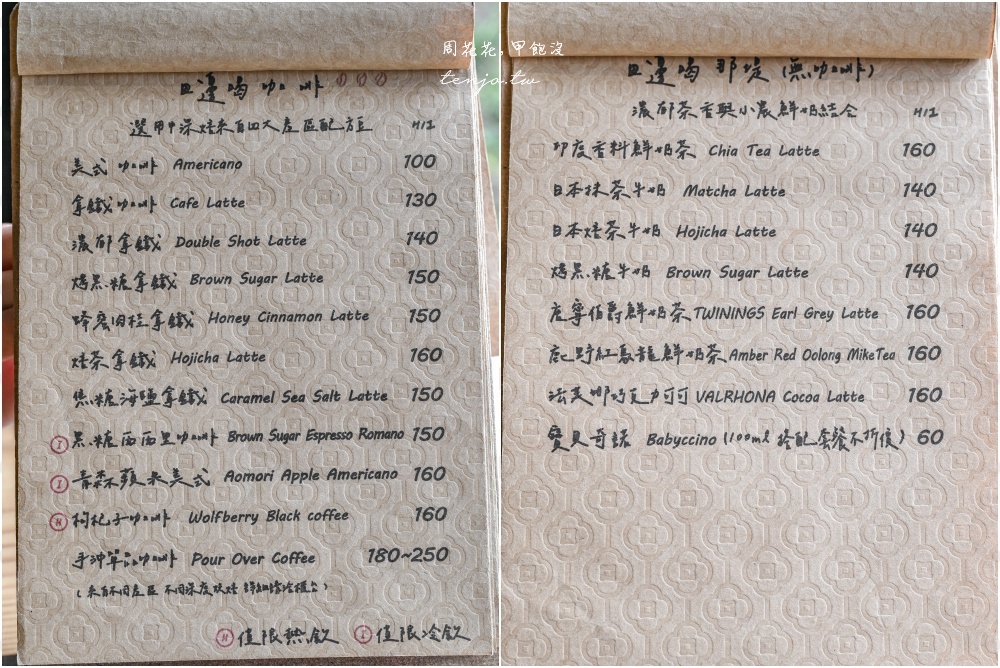 周花花，甲飽沒
tenjo.tw
邊喝咖啡
選用中深焙來自四大產區配方豆 H/I
美式咖啡 Americano 100
拿鐵咖啡 Cafe Latte 130
濃郁拿鐵 Double Shot Latte 140
烤黑糖拿鐵 Brown Sugar Latte 150
蜂蜜肉桂拿鐵 Honey Cinnamon Latte 150
焙茶拿鐵 Hojicha Latte 160
焦糖海鹽拿鐵 Caramel Sea Salt Latte 150
I 黑糖西西里咖啡 Brown Sugar Espresso Romano 150
I 青森蘋果美式 Aomori Apple Americano 160
H 枸杞子咖啡 Wolfberry Black coffee 160
手沖單品咖啡 Pour Over Coffee 180~250
(來自不同產區 不同深度烘焙 詳細請洽櫃台)
H 僅限熱飲 I 僅限冷飲
邊喝那堤(無咖啡)
濃郁茶香與小農鮮奶結合 H/I
印度香料鮮奶茶 Chia Tea Latte 160
日本抹茶牛奶 Matcha Latte 140
日本焙茶牛奶 Hojicha Latte 140
烤黑糖牛奶 Brown Sugar Latte 140
唐寧伯爵鮮奶茶 TWININGS Earl Grey Latte 160
鹿野紅烏龍鮮奶茶 Amber Red Oolong MikeTea 160
法芙娜巧克力可可 VALRHONA Cocoa Latte 160
寶貝奇諾 Babyccino (100ml 搭配套餐不折價) 60